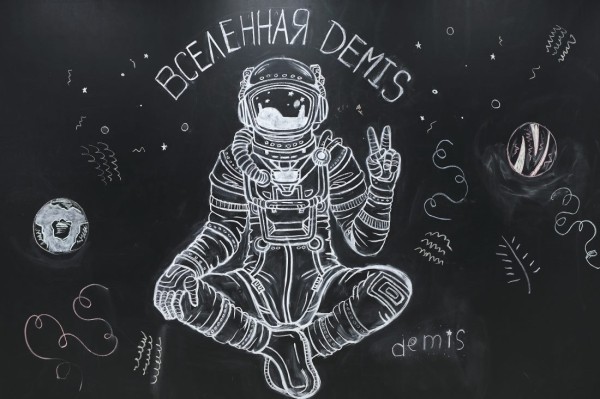 ВСЕЛЕННАЯ DEMIS
demis